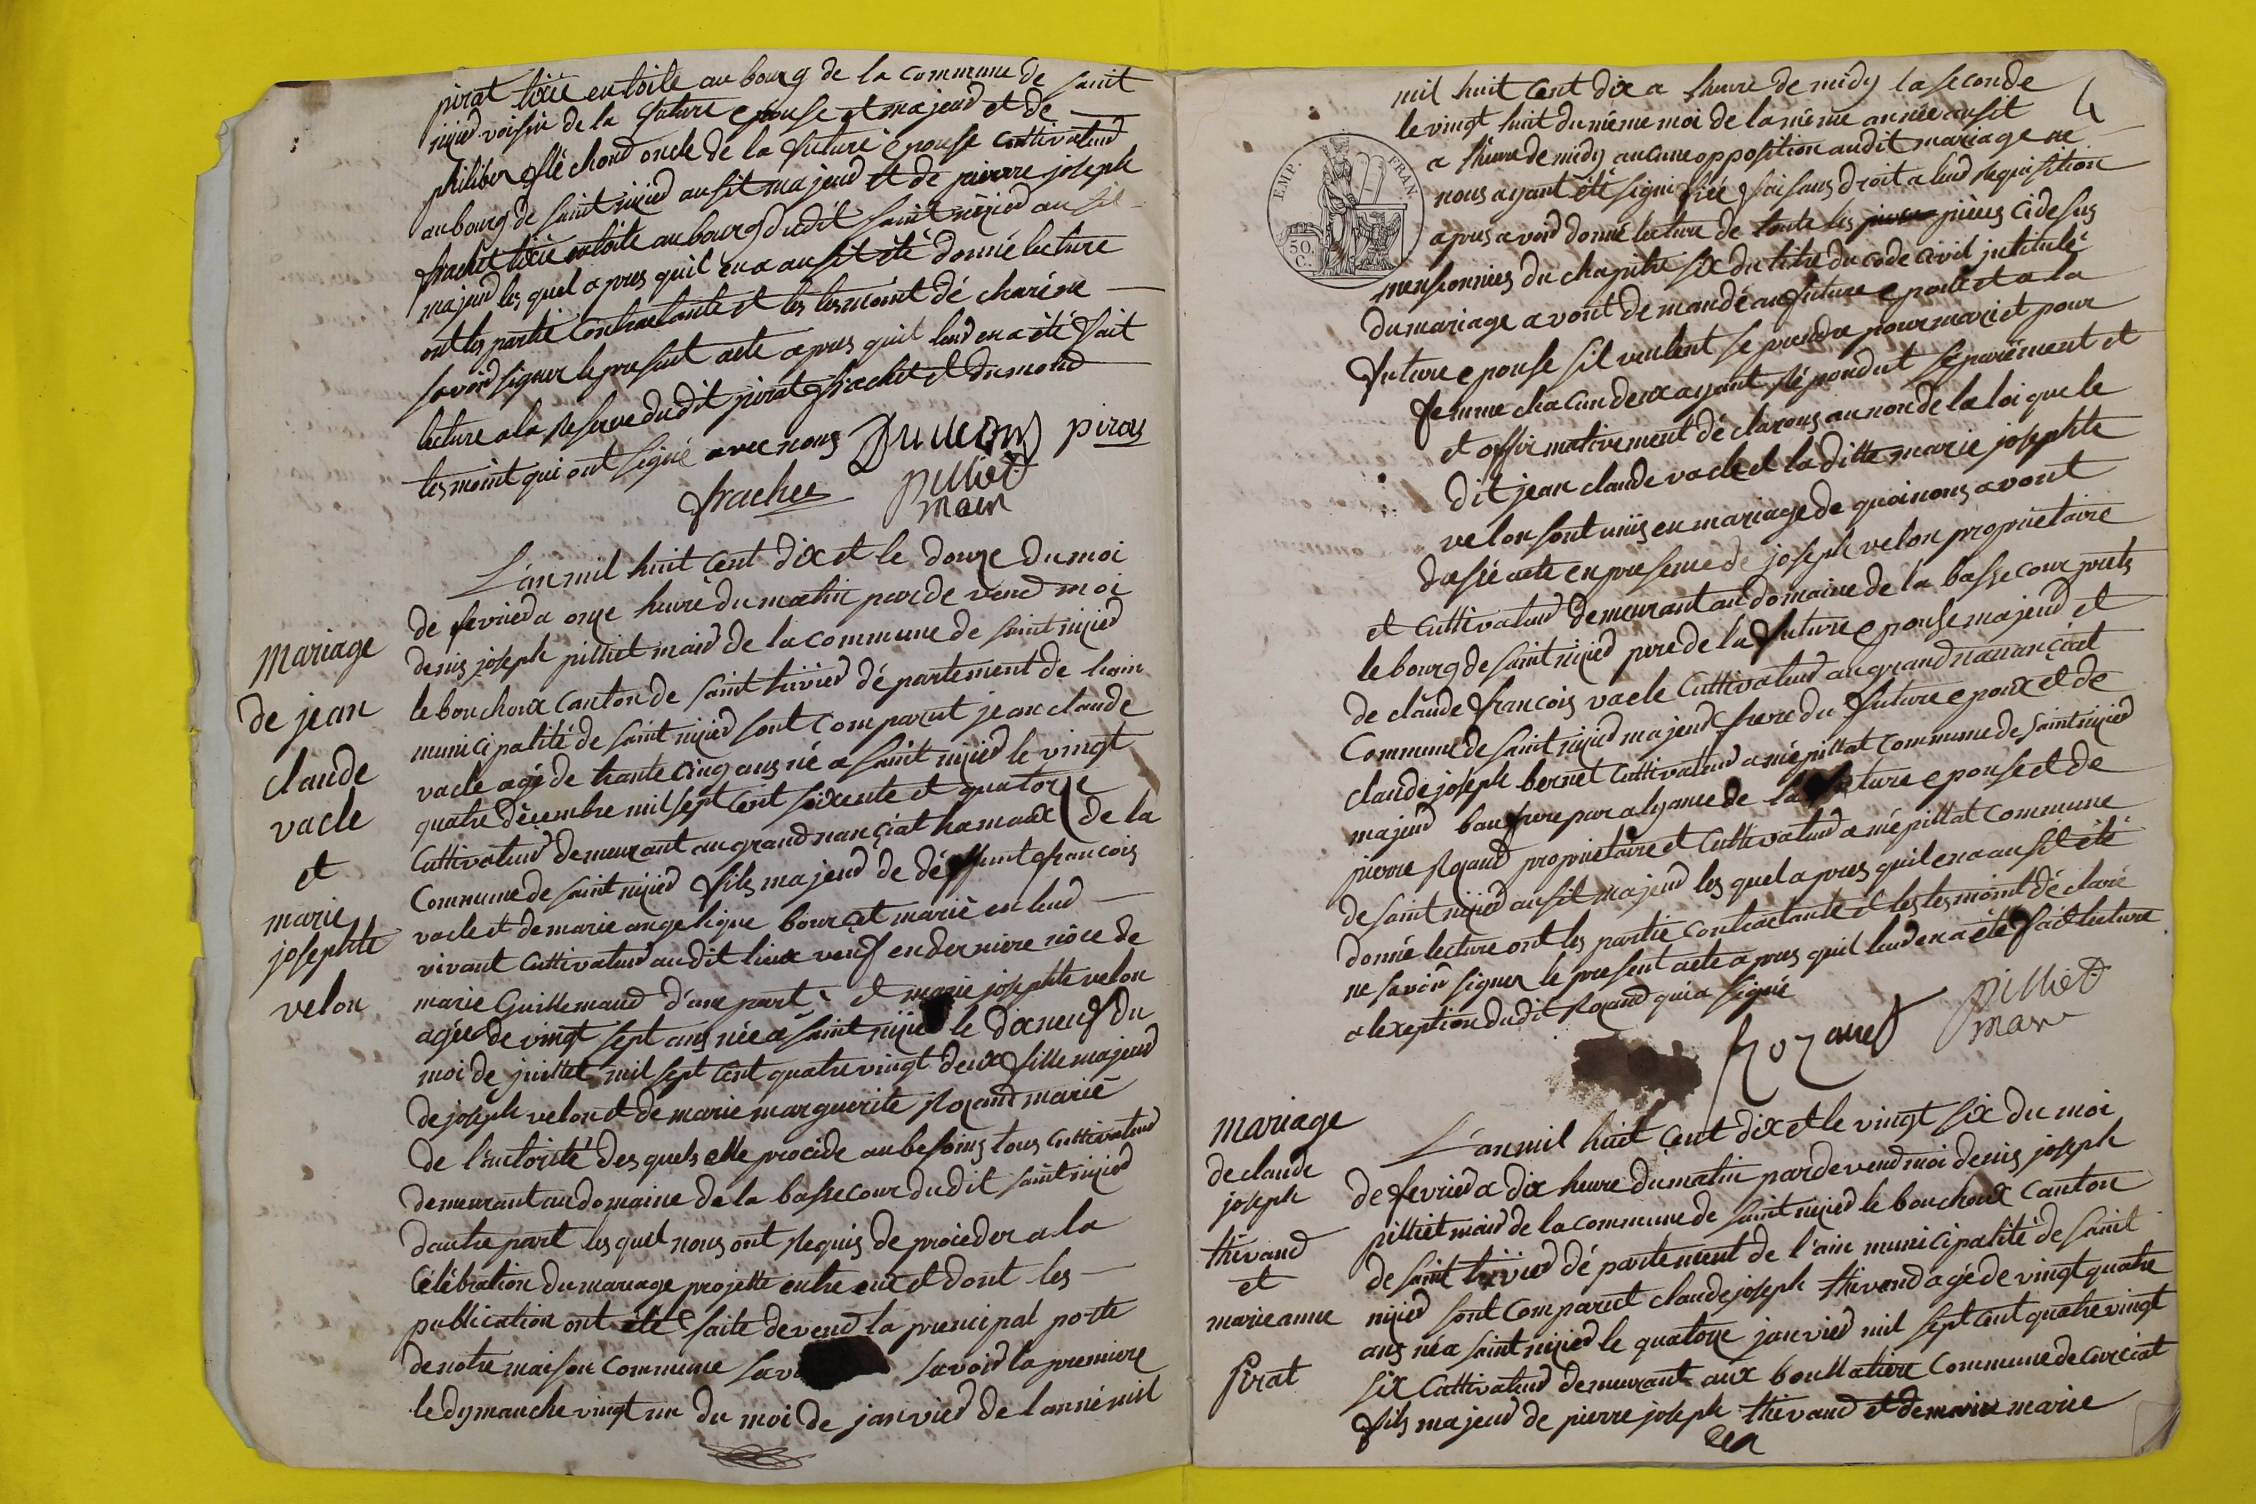 pirat tixie en toile au bourg de la commune de saint
nizied voisin de la future epouse et majeud et de
philiber fléchond oncle de la future epouse cuttivateud
au bourg de saint nizied ausit majeud et de pierre joseph
frachet tixie en toile au bourg dudit saint nizied ausit
majeud les quel apres quil en a ausit été donné lecture
ont les partie contractante et les tesmoint dé charé ne
savoid signer le present acte apres quil leud en a été fait
lecture a la reserve dudit pirat frachet et dumond
tesmoint qui ont signé avec nous Dumon piras
frachee pilliet
mair
mariage
de jean
claude
vacle
et
marie
josephte
velon
L'an mil huit cent dix et le douze du moi
de fevried a onze heure du matin par de vend moi
denis joseph pilliet maid de la commune de saint nizied
le bouchoux canton de saint trivied département de l'ain
municipalité de saint nizied sont comparut jean claude
vacle agé de trante cinq ans né a saint nizied le vingt
quatre décembre mil sept cent soixente et quatorze
cuttivateud demeurant au grand nançiat hamaux de la
commune de saint nizied fils majeud de déffunt francois
vacle et de marie angelique bourçet marié en leud
vivant cuttivateud audit lieux veuf en derniere nôce de
marie Guillemaud d'une part et marie josephte velon
agée de vingt sept ans née a saint nizied le dix neuf du
moi de juillet mil sept cent quatre vingt deux fille majeud
de joseph velon et de marie marguerite Rozand marié
de l'autorité des quels elle procéde au besoins tous cuttivateud
demeurant au domaine de la basse cour dudit saint nizied
dautre part les quel nous ont requis de proceder a la
célébration du mariage projetté entre eux et dont les
publication ont été faite devend la principal porte
de notre maison commune savoid la premiere
le dymanche vingt un du moi de janvied de lanné mil
4
EMP. FRAN.
50
C.
mil huit cent dix a lheure de midy la seconde
le vingt huit du même moi de la même année ausit
a lheure de midy aucune opposition audit mariage ne
nous ayant été signifiée faisans droit a leud requisition
apres avoid donné lecture de toute les pièces ci desus
mensonnies du chapitre six du titre du code civil jntitulé
du mariage avont demandé au future epoux et a la
future epouse sil veulent se prendre pour mari et pour
femme chacun deux ayant répondut séparément et
et affirmativement déclarons au non de la loi que le
dit jean claude vacle et la ditte marie josephte
velon sont uniis en mariage de quoi nous avont
dressé acte en presense de joseph velon proprietaire
et cuttivateud demeurant au domaine de la basse cour prets
le bourg de saint nizied pere de la future epouse majeud et
de claude francois vacle cuttivateud au grand nanançiat
commune de saint nizied majeud frere du future epoux et de
claude joseph bernet cuttivateud a mépillat commune de saint nizied
majeud baufrere par alyance de la future epouse et de
pierre Rozand proprietaire et cuttivateud a mépillat commune
de saint nizied ausit majeud les quel apres quil en a ausit été
donné lecture ont les partie contractante et les tesmoint déclaré
ne savoir signer le present acte apres quil leud en a été fait lecture
a lexeption dudit Rozand qui a signé
Rozand pilliet
mair
mariage
de claude
joseph
thévand
et
marie anne
pirat
L'an mil huit cent dix et le vingt six du moi
de fevried a dix heure du matin par devend moi denis joseph
pilliet maid de la commune de saint nizied le bouchoux canton
de saint trivied département de l'ain municipalité de saint
nizied sont comparut claude joseph thévand agé de vingt quatre
ans né a saint nizied le quatorze janvied mil sept cent quatre vingt
six cuttivateud demeurant aux boullatiere commune de curciat
fils majeud de pierre joseph thévand et de marie marie